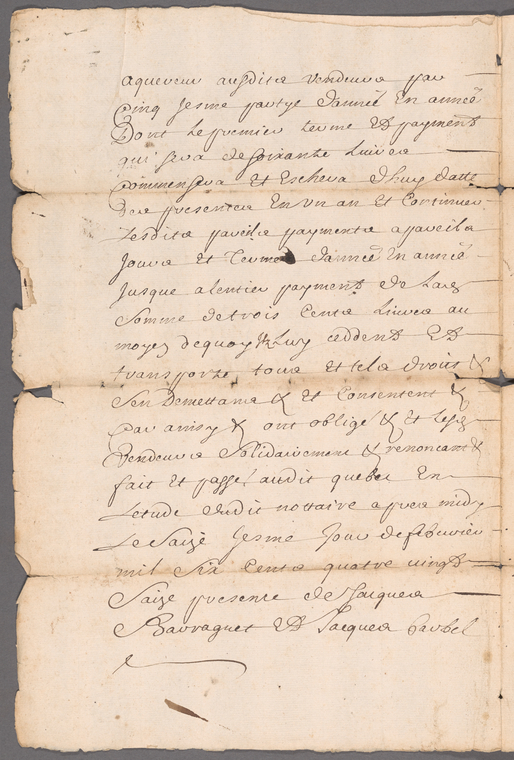 aquereur ausdits vendeurs par
Cinq Jesme partye dannéé En annéé
Dont le premier terme Et payment
qui sera de soixante Livres
Commensera Et Eschera dhuy datte
des presentes En un an Et Continuer
Lesdits pareils payments a pareils
Jours Et Termes dannéé En annéé
Jusque alentier payment de Lad
Somme de trois Cents Livres au
moyen dequoy Luy ceddent Et
transporte tous et tels droits &
sen Demettans & Et Consentent &
Car ainsy & ont obligé & Et Lesd
Vendeurs Solidairement & renoncant &
fait Et passé audit quebec En
Letude dudit nottaire apres midy
Le Saize Jesme Jour de febvrier
mil Six Cents quatre vingt
Saize presence de Jacques
Barragnet Et Jacques barbel